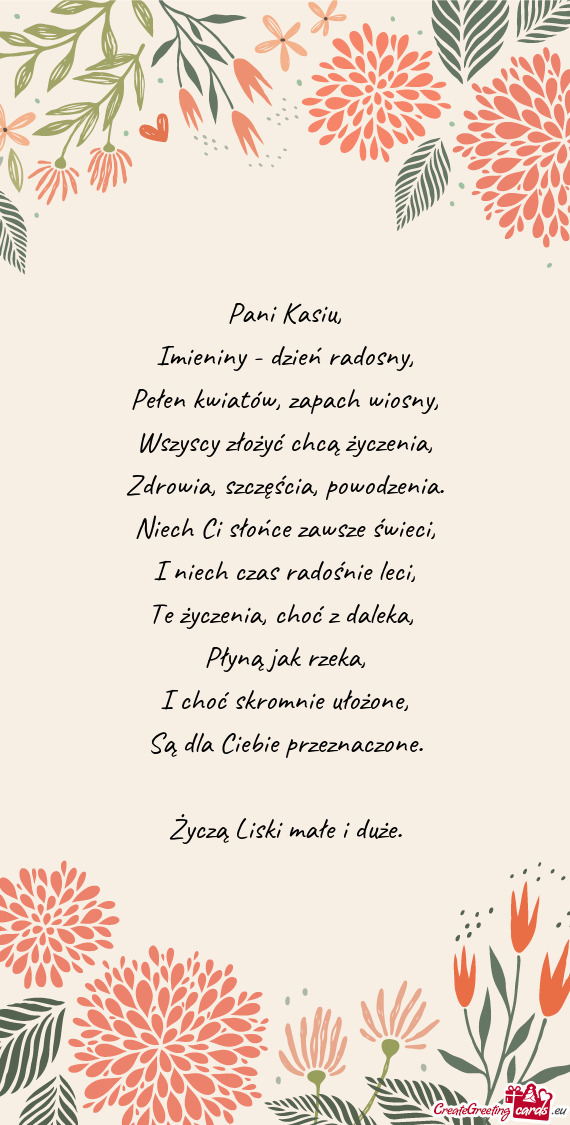 Pani Kasiu,
Imieniny - dzień radosny,
Pełen kwiatów, zapach wiosny,
Wszyscy złożyć chcą życzenia,
Zdrowia, szczęścia, powodzenia.
Niech Ci słońce zawsze świeci,
I niech czas radośnie leci,
Te życzenia, choć z daleka,
Płyną jak rzeka,
I choć skromnie ułożone,
Są dla Ciebie przeznaczone.
Życzą Liski małe i duże.
CreateGreeting cards .eu